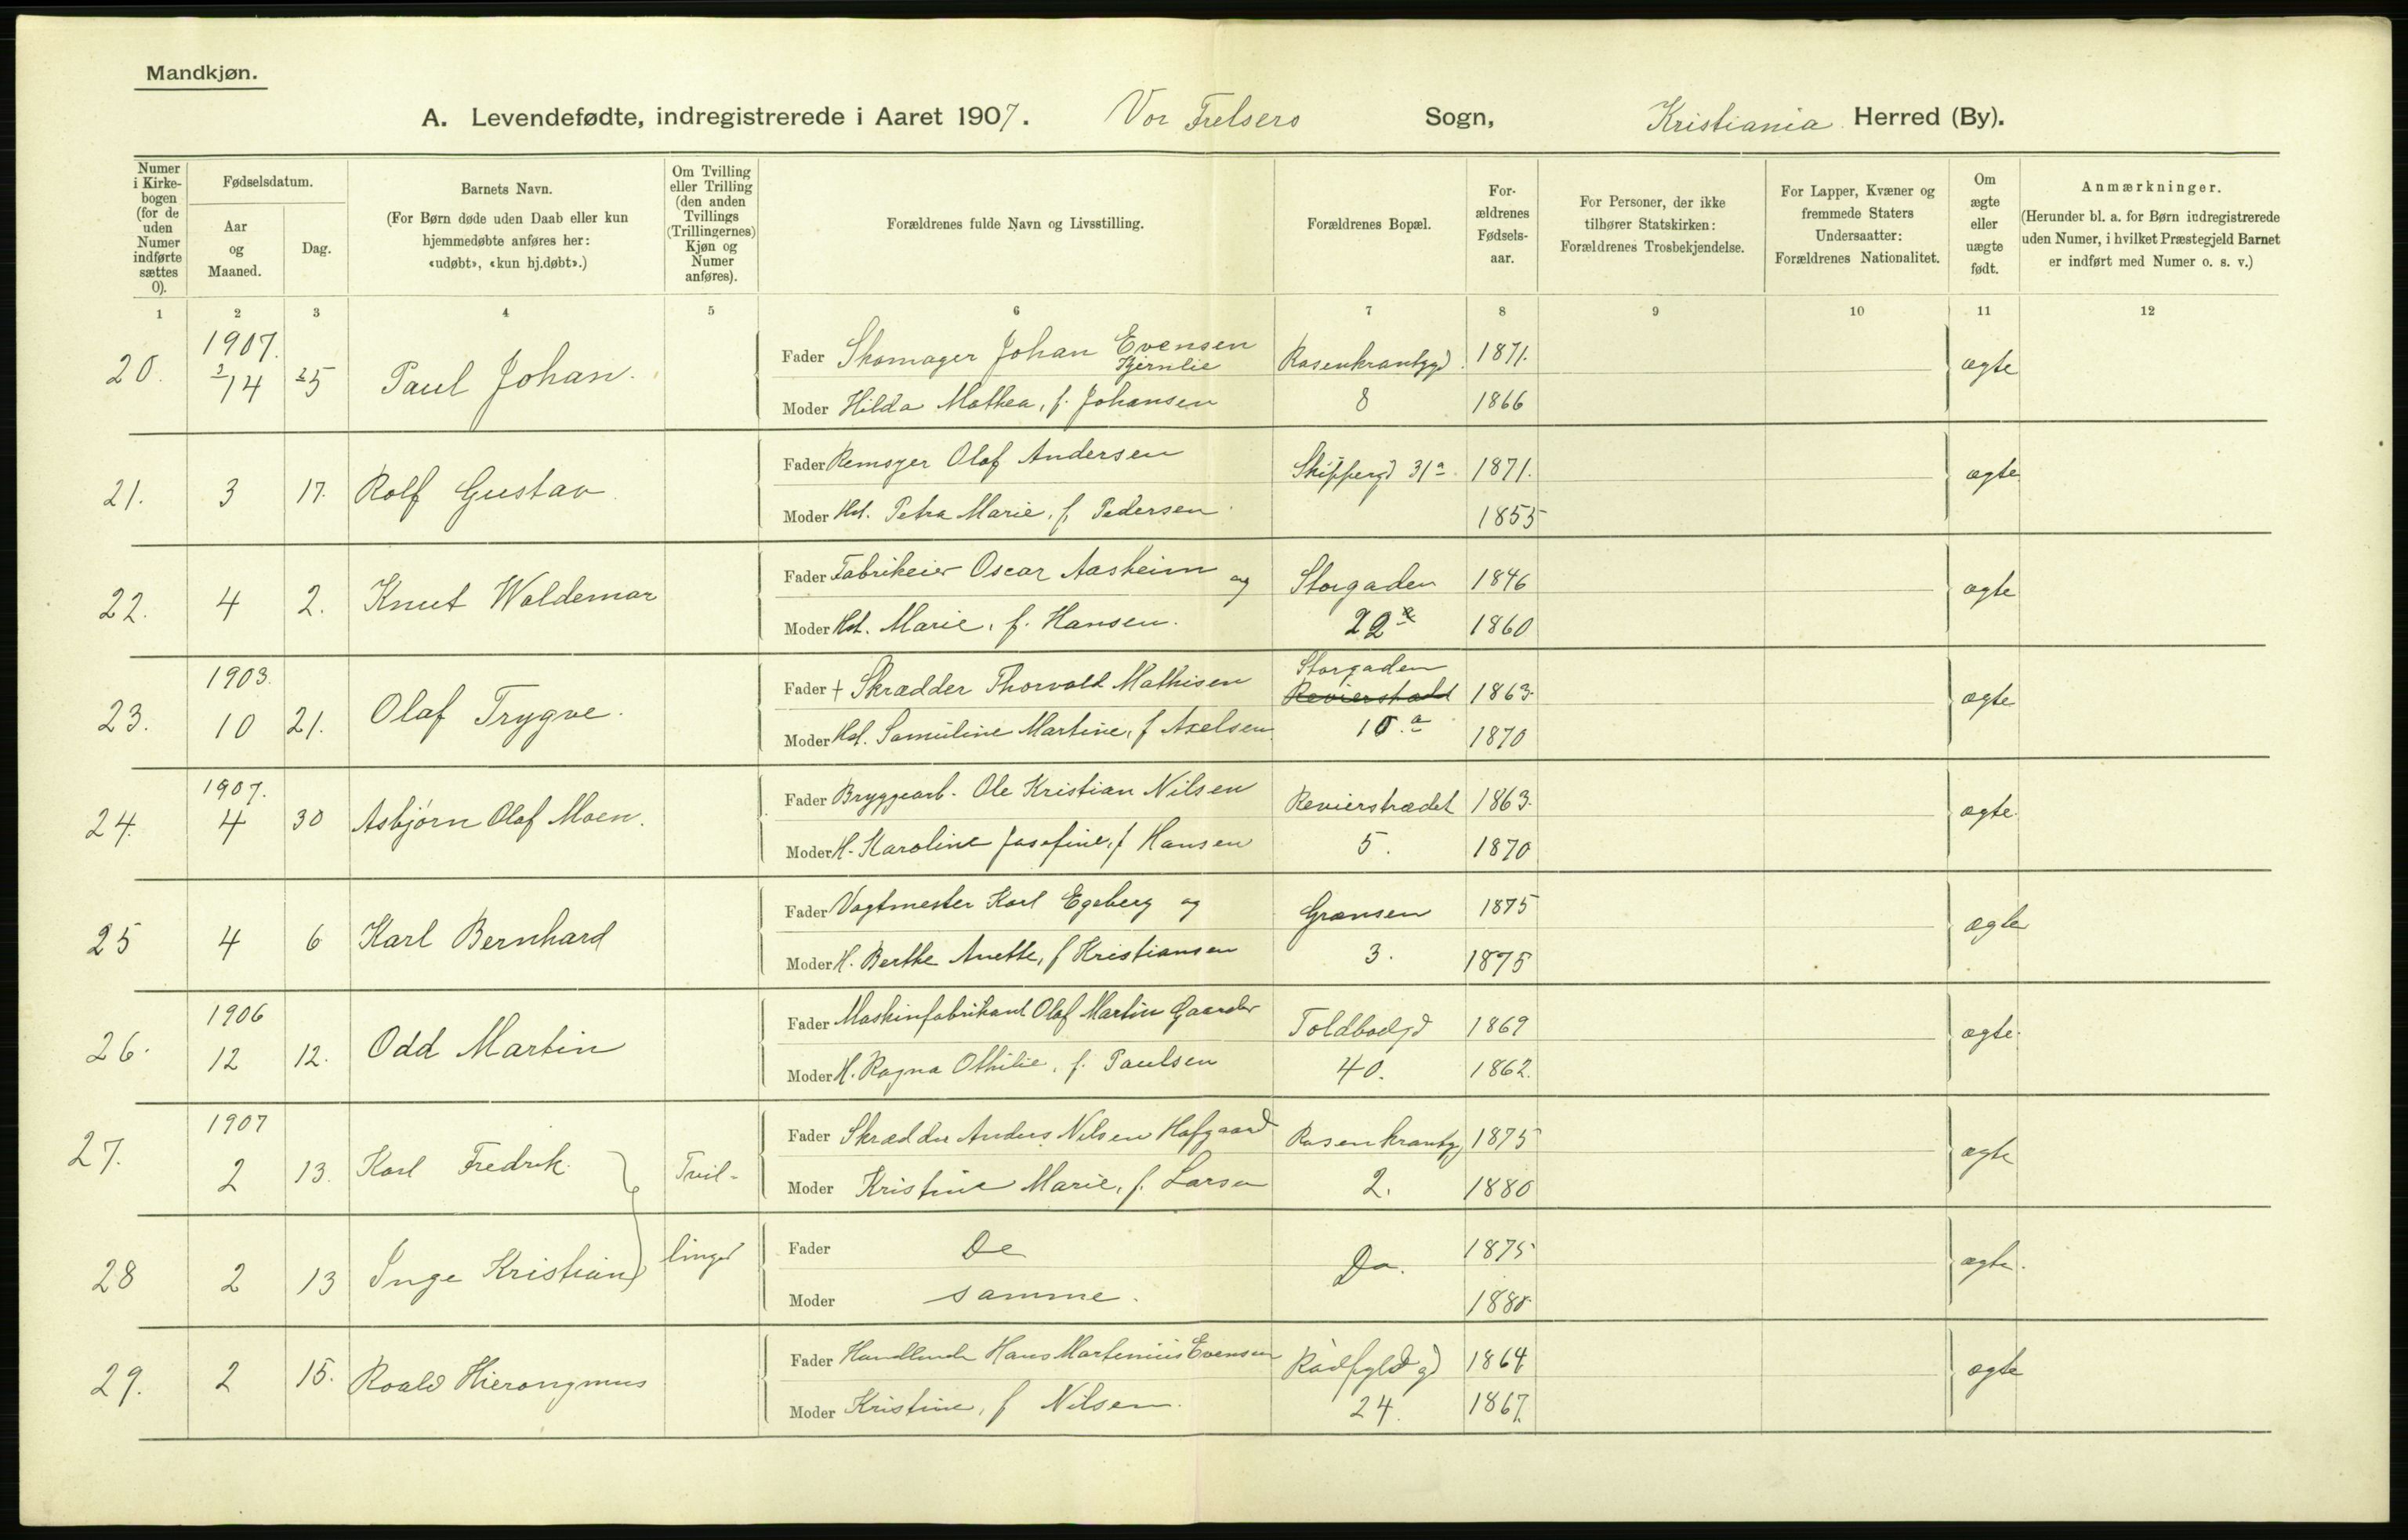 Mandkjøn.
A. Levendefødte, indregistrerede i Aaret 1907. Vor Frelsers Sogn, Kristiania Herred (By).
Numer i Kirkebogen (for de uden Numer indførte sættes 0).
Fødselsdatum.
Aar og Maaned.
Dag.
Barnets Navn.
(For Børn døde uden Daab eller kun hjemmedøbte anføres her: «udøbt», «kun hj.døbt».)
Om Tvilling eller Trilling (den anden Tvillings (Trillingernes) Kjøn og Numer anføres).
Forældrenes fulde Navn og Livsstilling.
Forældrenes Bopæl.
Forældrenes Fødselsaar.
For Personer, der ikke tilhører Statskirken: Forældrenes Trosbekjendelse.
For Lapper, Kvæner og fremmede Staters Undersaatter: Forældrenes Nationalitet.
Om ægte eller uægte født.
Anmærkninger.
(Herunder bl. a. for Børn indregistrerede uden Numer, i hvilket Præstegjeld Barnet er indført med Numer o. s. v.)
1 2 3 4 5 6 7 8 9 10 11 12
1907.
20. 25 Paul Johan. Fader Skomager Johan Evensen Bjernlie Rosenkrantzgd. 1871. ægte
Moder Hilda Mathea, f. Johansen 8 1866
21. 3 17. Rolf Gustav Fader Remsyer Olaf Andersen Skippergd 31a. 1871. ægte
Moder Hst. Petra Marie, f. Pedersen. 1855
22. 4 2. Knut Waldemar Fader Fabrikeier Oscar Aasheim og Storgaden 1846 ægte
Moder Hst. Marie, f. Hansen. 22 1860
1903. Storgaden
23. 10 21. Olaf Trygve. Fader + Skrædder Thorvald Mathisen Revierstrædet 1863. ægte
Moder Hst. Samuline Martine, f Axelsen 10.a 1870
1907.
24. 4 30 Asbjørn Olaf Moen. Fader Bryggearb. Ole Kristian Nilsen Revierstrædet 1863. ægte.
Moder H. Karoline Josefine, f Hansen 5. 1870
25 4 6 Karl Bernhard Fader Vagtmester Karl Egeberg og Grænsen 1875 ægte
Moder H. Berthe Anette, f Kristiansen 3. 1875
1906
26. 12 12. Odd Martin Fader Maskinfabrikant Olaf Martin Gaarder Toldbodgd 1869 ægte.
Moder H. Ragna Othilie, f. Paulsen 40. 1862.
1907
27. 2 13. Karl Fredrik. Tvil- Fader Skrædder Anders Nilsen Hofgaard Rosenkrantzg 1875 ægte
Moder Kristine Marie, f. Larsen 2. 1880
28 2 13 Inge Kristian linger Fader De Do. 1875 ægte.
Moder samme. 1880.
29. 2 15. Roald Hieronymus Fader Handlende Hans Martenius Evensen Raadhusgd 1864 ægte
Moder Kristine, f Nilsen. 24. 1867.